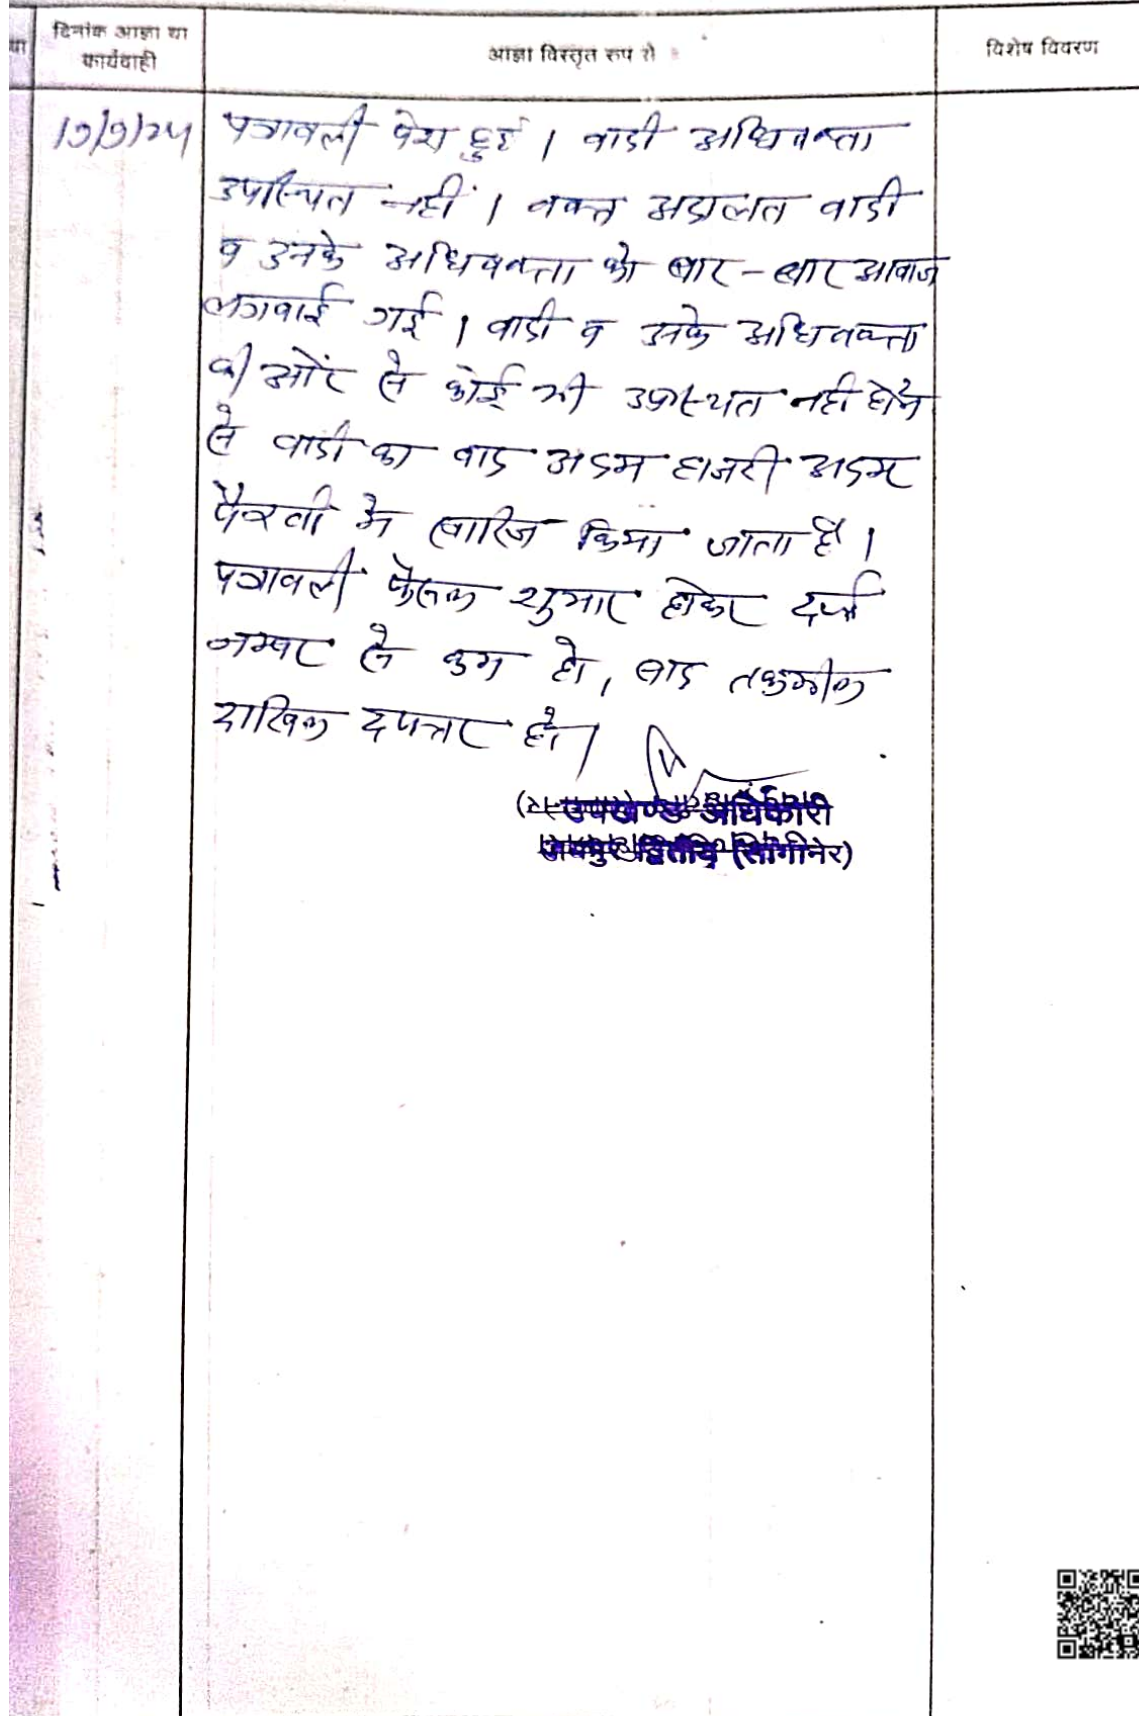 या
दिनांक आज्ञा या
कार्यवाही
आज्ञा विस्तृत रुप से
विशेष विवरण
पत्रावली पेश हुई । वादी अधिवक्ता
उपस्थित नहीं । वक्त अदालत वादी
व उनके अधिवक्ता को बार-बार आवाज
लगवाई गई । वादी व उसके अधिवक्ता
की ओर से कोई भी उपस्थित नहीं होने
से वादी का वाद अदम हाजरी अदम
पैरवी मे खारिज किया जाता है ।
पत्रावली फैसल शुमार होकर दर्ज
नम्बर से कम हो, बाद तकमील
दाखिल दफ्तर हो।
उपखण्ड अधिकारी
जयपुर द्वितीय (सांगानेर)